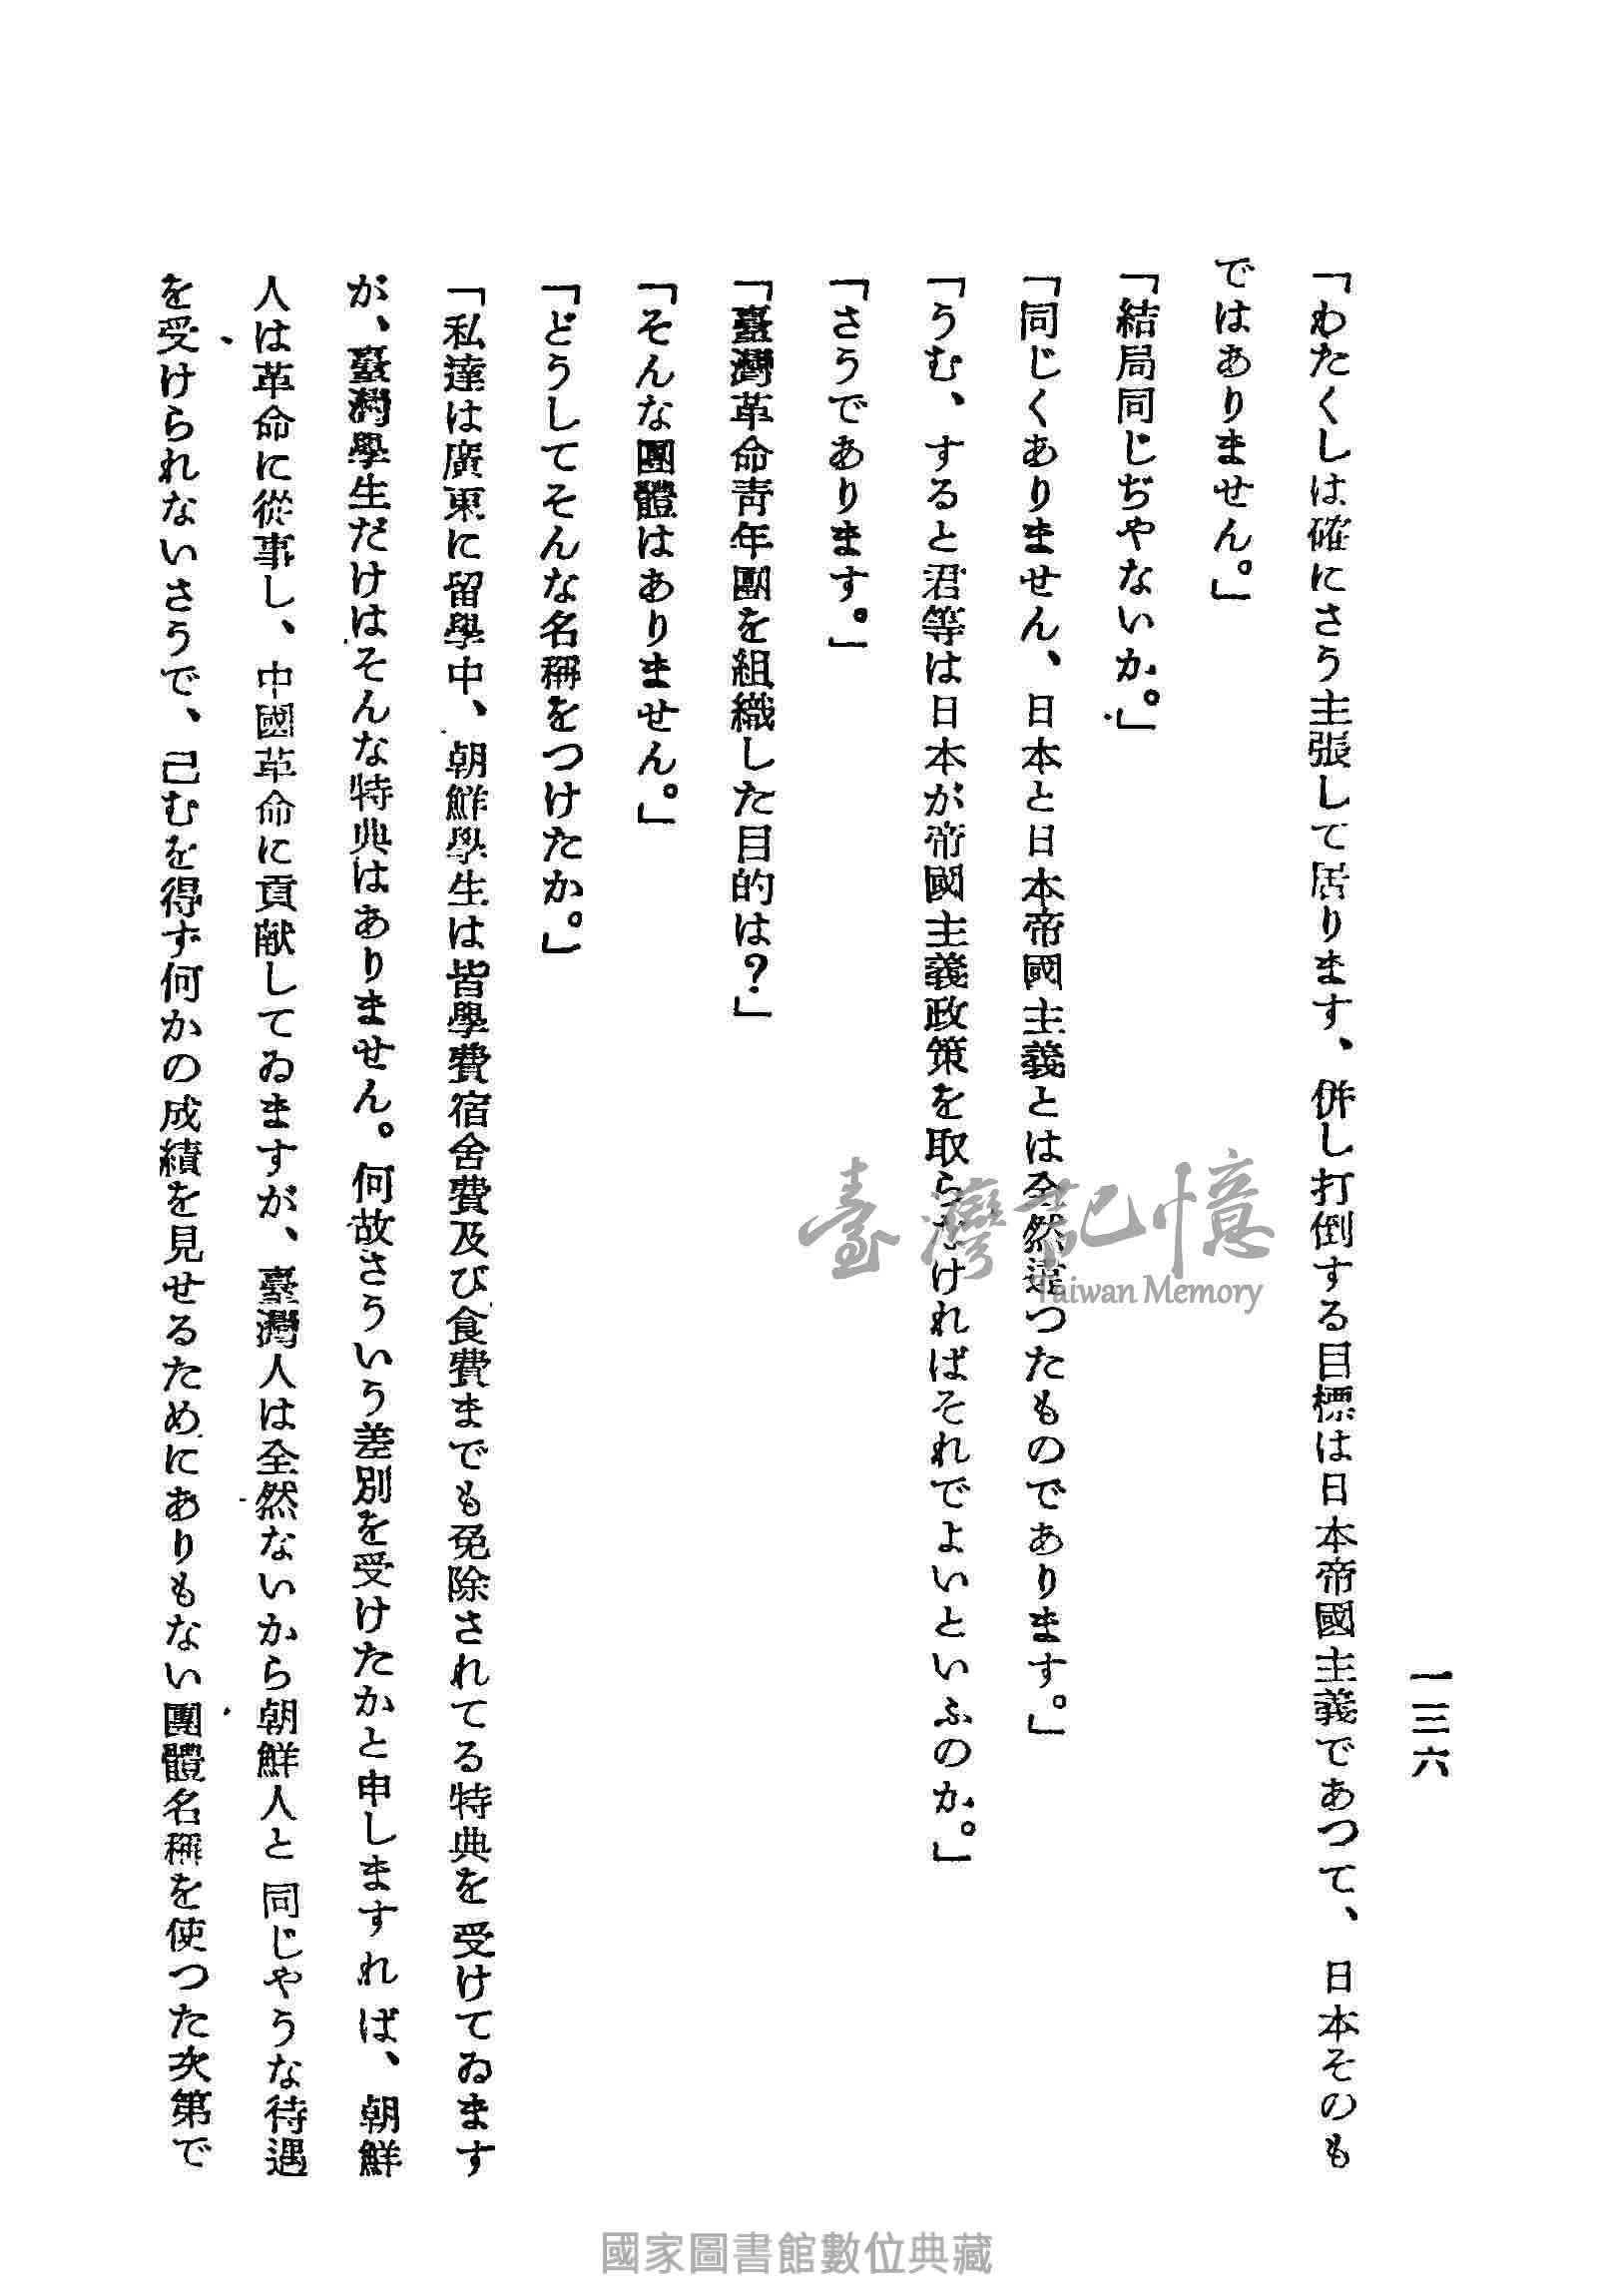 一三六
「わたくしは確にさう主張して居ります、併し打倒する目標は日本帝國主義であつて、日本そのも
ではありません。」
「結局同じぢやないか。」
「同じくありません、日本と日本帝國主義とは全然違つたものであります。」
「うむ、すると君等は日本が帝國主義政策を取らなければそれでよいといふのか。」
「さうであります。」
「臺灣革命靑年團を組織した目的は?」
「そんな團體はありません。」
「どうしてそんな名稱をつけたか。」
「私達は廣東に留學中、朝鮮學生は皆學費宿舍費及び食費までも免除されてる特典を受けてゐます
が、臺灣學生だけはそんな特典はありません。何故さういう差別を受けたかと申しますれば、朝鮮
人は革命に從事し、中國革命に貢献してゐますが、臺灣人は全然ないから朝鮮人と同じやうな待遇
を受けられないさうで、己むを得ず何かの成績を見せるためにありもない團體名稱を使つた次第で
臺灣記憶
Taiwan Memory
國家圖書館數位典藏